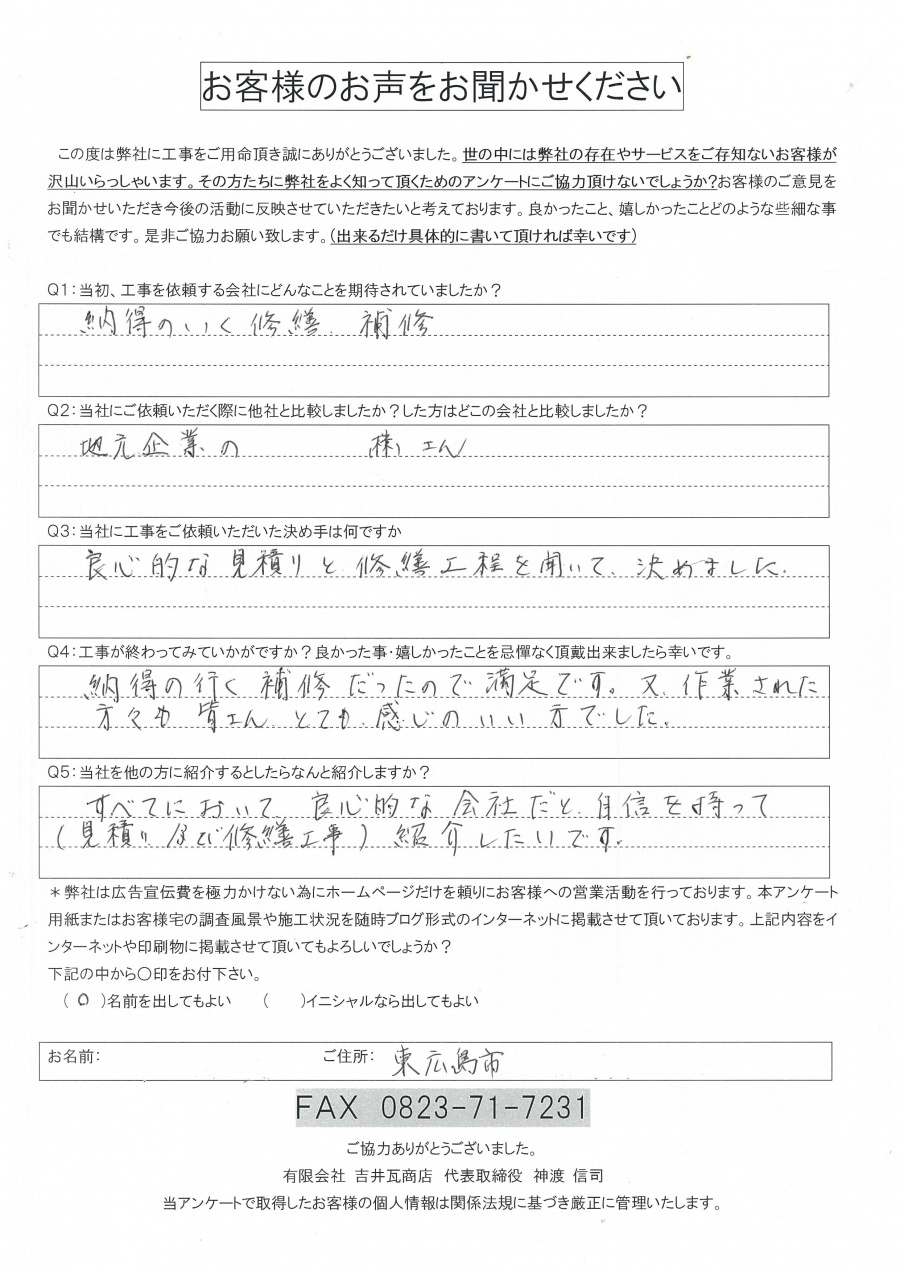 お客様のお声をお聞かせください
この度は弊社に工事をご用命頂き誠にありがとうございました。世の中には弊社の存在やサービスをご存知ないお客様が
沢山いらっしゃいます。その方たちに弊社をよく知って頂くためのアンケートにご協力頂けないでしょうか?お客様のご意見を
お聞かせいただき今後の活動に反映させていただきたいと考えております。良かったこと、嬉しかったことどのような些細な事
でも結構です。是非ご協力お願い致します。(出来るだけ具体的に書いて頂ければ幸いです)
Q1:当初、工事を依頼する会社にどんなことを期待されていましたか?
納得のいく修繕、補修
Q2:当社にご依頼いただく際に他社と比較しましたか?した方はどこの会社と比較しましたか?
地元企業の 株)さん
Q3:当社に工事をご依頼いただいた決め手は何ですか
良心的な見積りと修繕工程を聞いて、決めました。
Q4:工事が終わってみていかがですか?良かった事・嬉しかったことを忌憚なく頂戴出来ましたら幸いです。
納得の行く補修だったので満足です。又、作業された
方々も皆さん、とても感じのいい方でした。
Q5:当社を他の方に紹介するとしたらなんと紹介しますか?
すべてにおいて、良心的な会社だと、自信を持って
(見積り、及び修繕工事)紹介したいです。
*弊社は広告宣伝費を極力かけない為にホームページだけを頼りにお客様への営業活動を行っております。本アンケート
用紙またはお客様宅の調査風景や施工状況を随時ブログ形式のインターネットに掲載させて頂いております。上記内容をイ
ンターネットや印刷物に掲載させて頂いてもよろしいでしょうか?
下記の中から○印をお付下さい。
(○)名前を出してもよい ( )イニシャルなら出してもよい
お名前: ご住所: 東広島市
FAX 0823-71-7231
ご協力ありがとうございました。
有限会社 吉井瓦商店 代表取締役 神渡 信司
当アンケートで取得したお客様の個人情報は関係法規に基づき厳正に管理いたします。